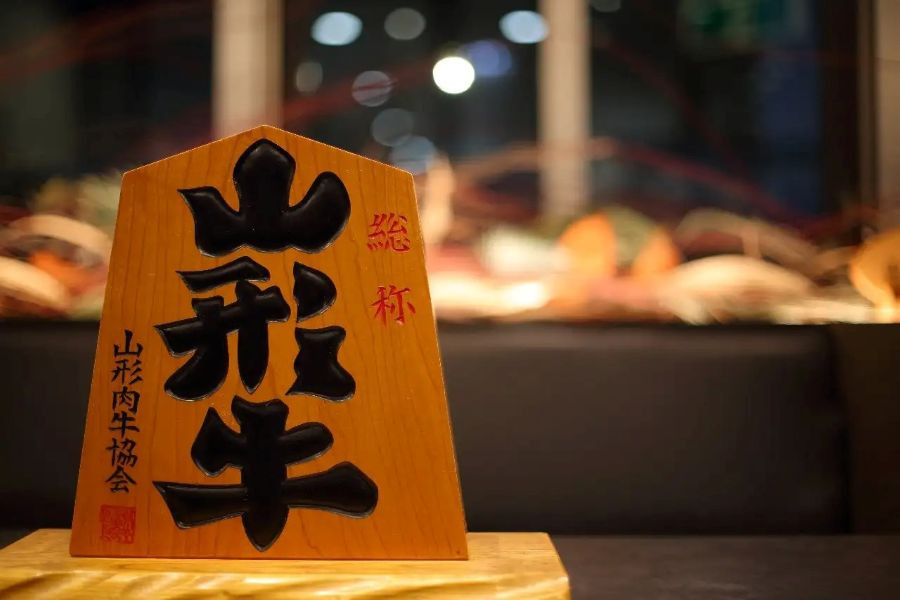 総称
山形牛
山形肉牛協会